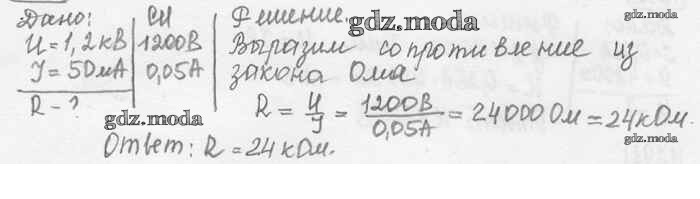 Дано: | СИ | Решение.
U = 1,2 кВ | 1200В | Выразим сопротивление из
I = 50 мА | 0,05А | закона Ома.
R - ?
R = U/I = 1200В/0,05А = 24000 Ом = 24 кОм.
Ответ: R = 24 кОм.
gdz.moda
gdz.moda
gdz.moda
gdz.moda